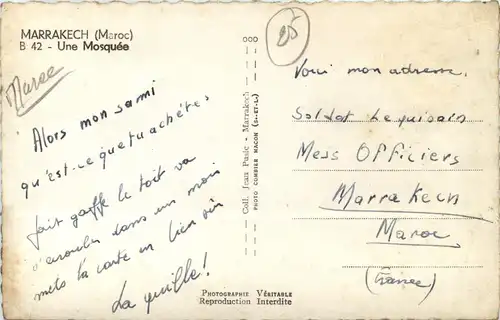 MARRAKECH (Maroc)
B 42 - Une Mosquée
Maroc
Alors mon sami
qu'est-ce que tu achètes
fait gaffe le toit va
s'écrouler dans un mois
mets la carte en lieu sûr
La quille!
Coll. Jean Pusic - Marrakech
PHOTO COMBIER MACON (S.-ET-L.)
PHOTOGRAPHIE VÉRITABLE
Reproduction Interdite
25
Voici mon adresse.
Soldat Lequisain
Mess OFFiciers
Marrakech
Maroc
(France)